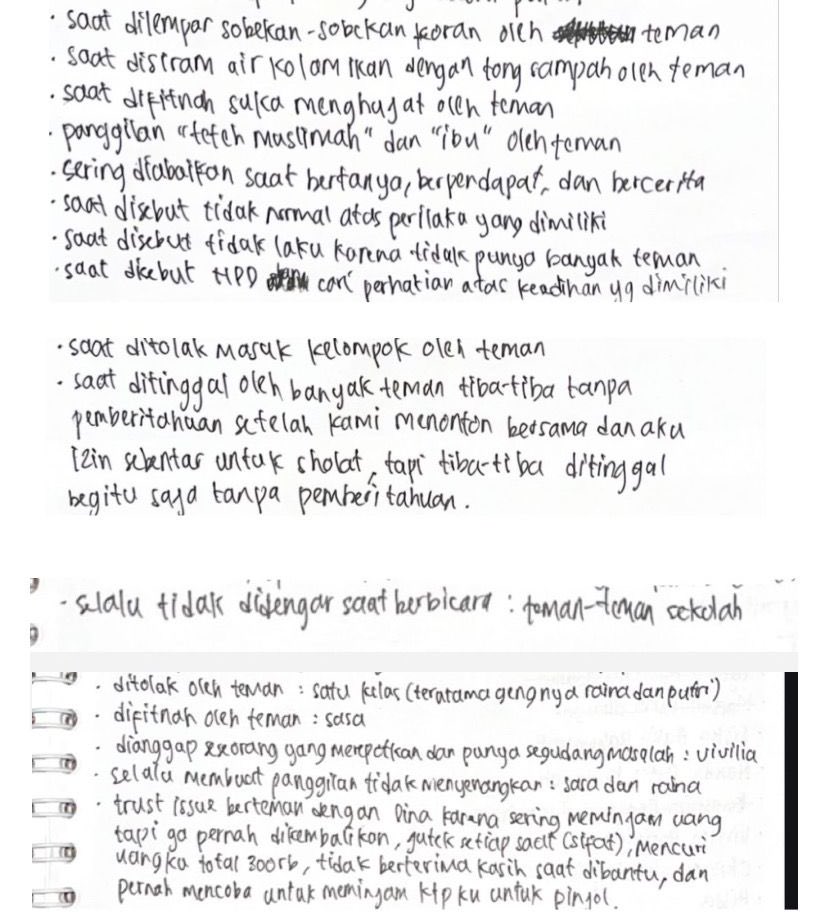 · saat dilempar sobekan-sobekan koran oleh teman
· saat disiram air kolam ikan dengan tong sampah oleh teman
· saat difitnah suka menghujat oleh teman
· panggilan "teteh muslimah" dan "ibu" oleh teman
· sering diabaikan saat bertanya, berpendapat, dan bercerita
· saat disebut tidak normal atas perilaku yang dimiliki
· saat disebut tidak laku karena tidak punya banyak teman
· saat disebut HPD cari perhatian atas keadihan yg dimiliki
· saat ditolak masuk kelompok oleh teman
· saat ditinggal oleh banyak teman tiba-tiba tanpa
pemberitahuan setelah kami menonton bersama dan aku
izin sebentar untuk sholat, tapi tiba-tiba ditinggal
begitu saja tanpa pemberitahuan.
· selalu tidak didengar saat berbicara : teman-teman sekolah
· ditolak oleh teman : satu kelas (teratama gengnya raina dan putri)
· difitnah oleh teman : sasa
· dianggap seorang yang merepotkan dan punya segudang masalah : vivilia
· selalu membuat panggilan tidak menyenangkan : sasa dan raina
· trust issue berteman dengan Dina karana sering meminjam uang
tapi ga pernah dikembalikan, jutek setiap saat (sifat), mencuri
uangku total 300rb, tidak berterima kasih saat dibantu, dan
pernah mencoba untuk meminjam ktp ku untuk pinjol.